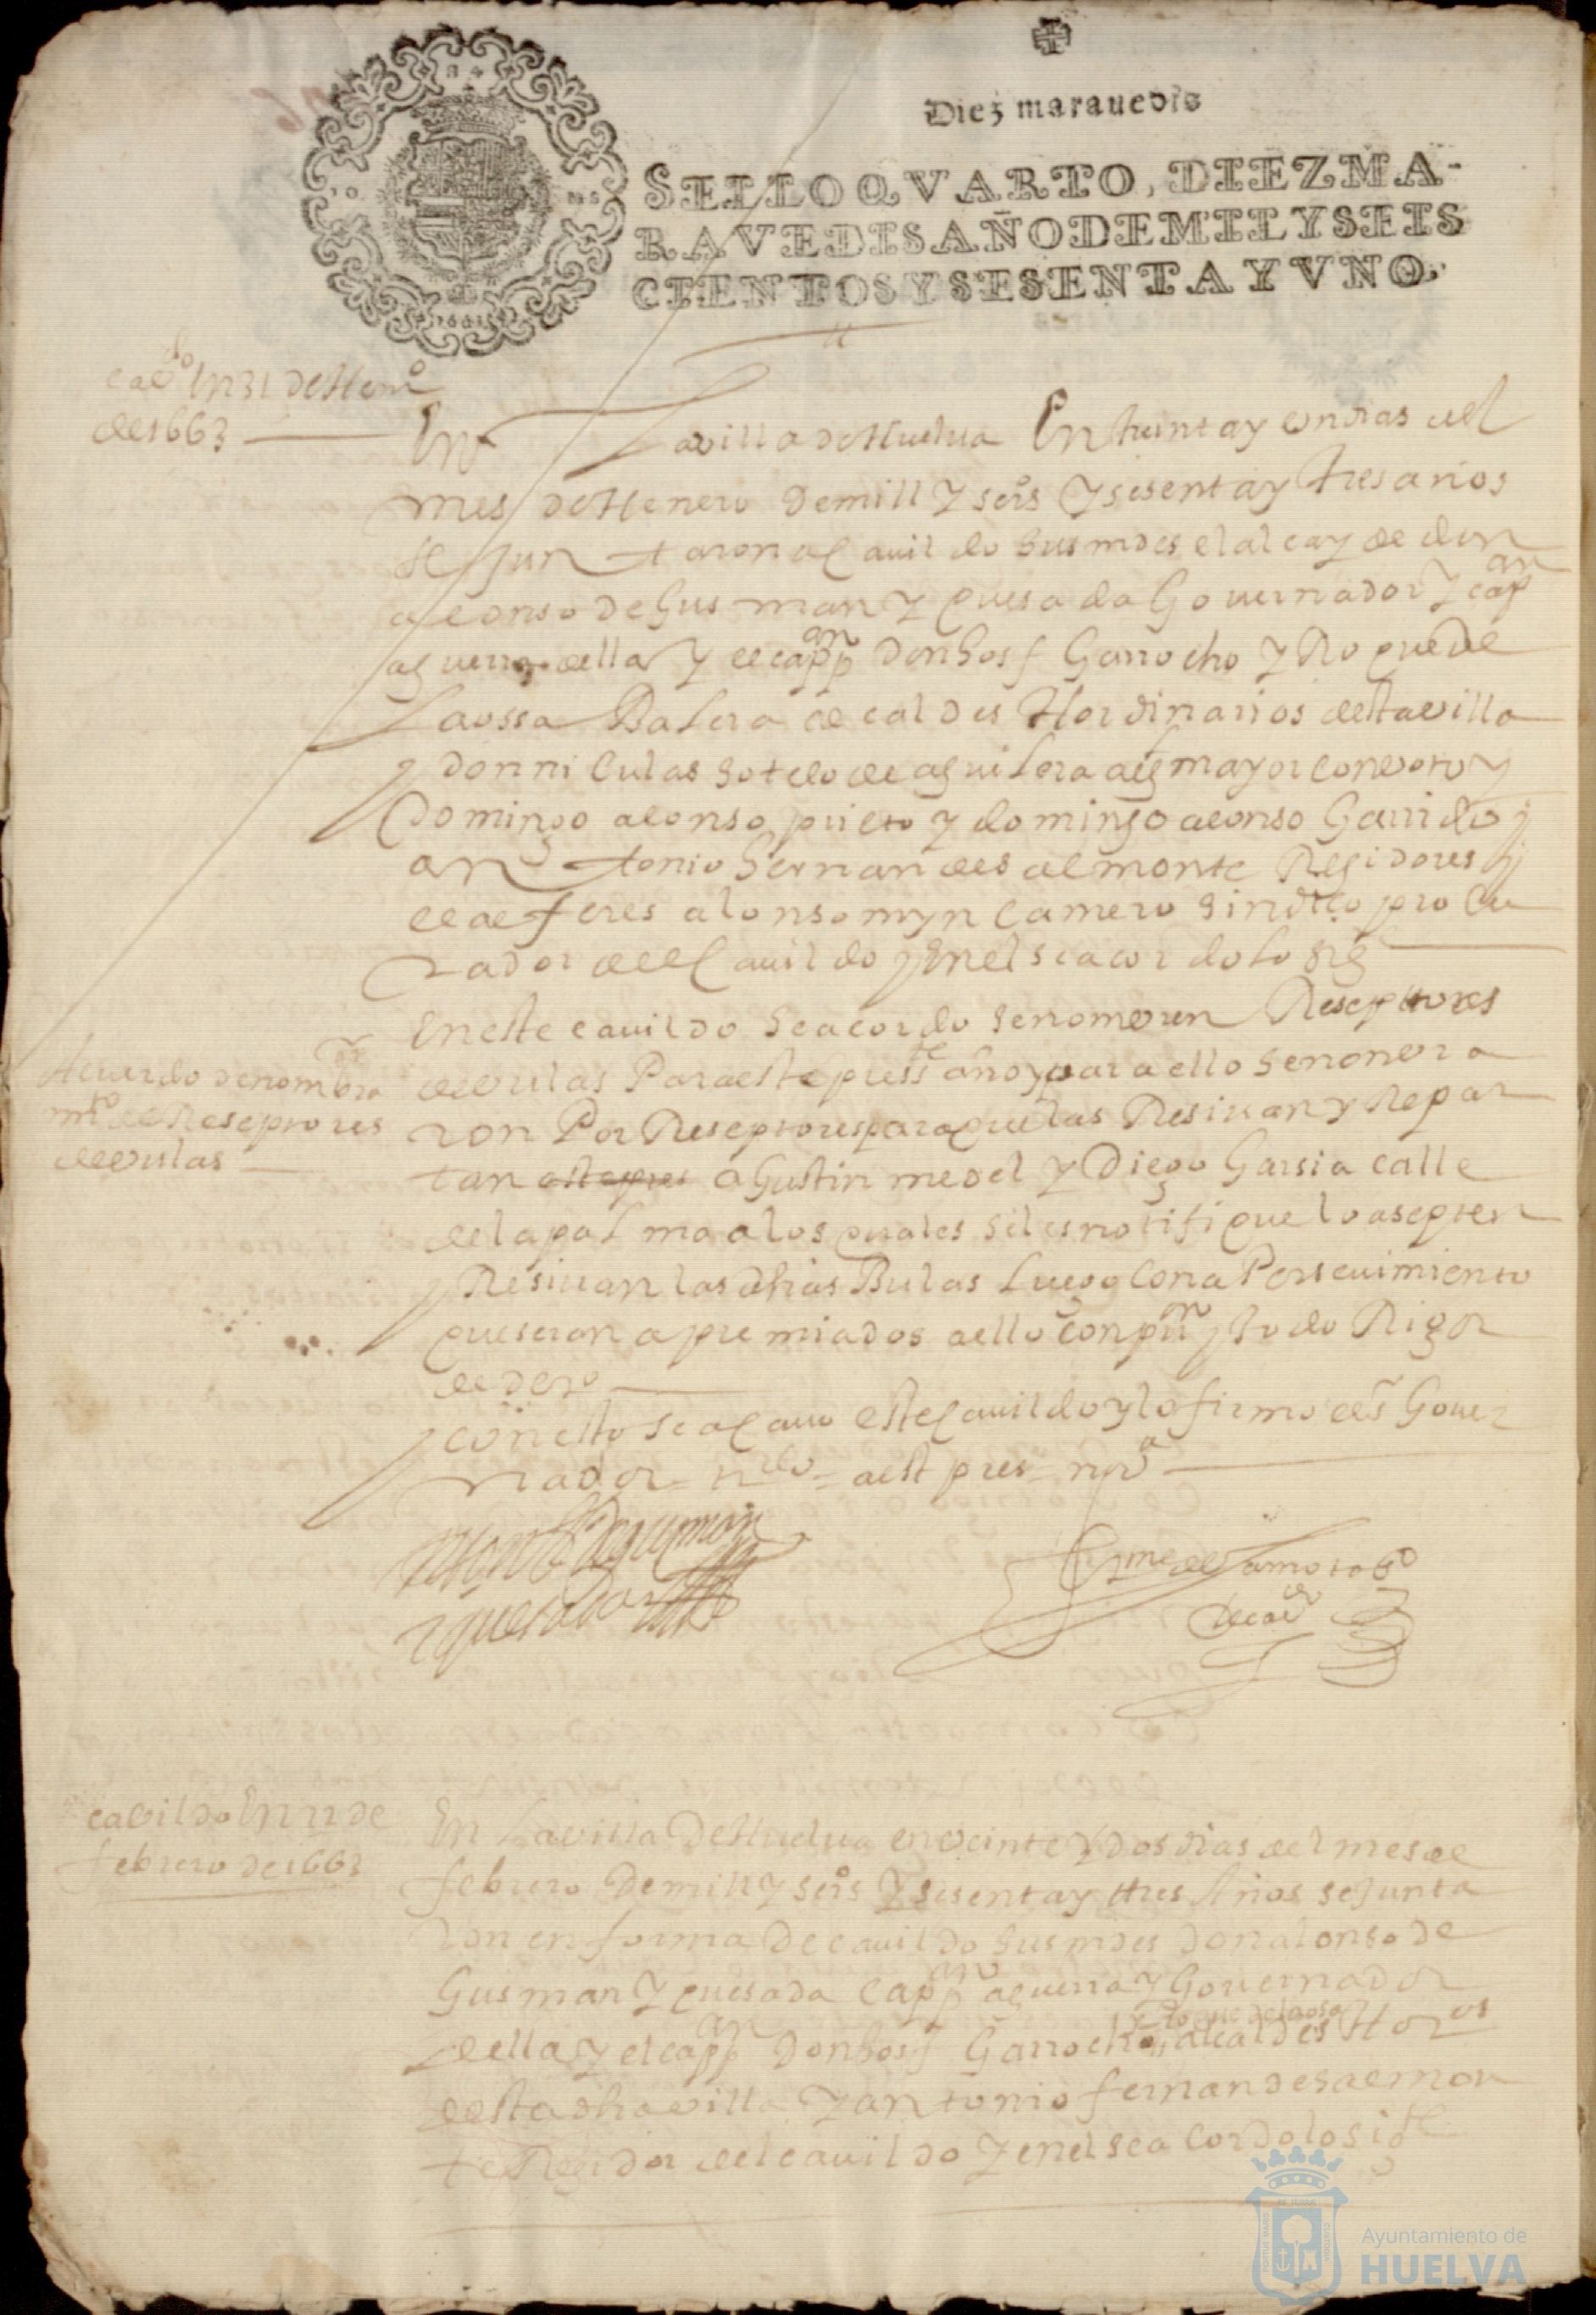 Diez marauedis
SELLO QVARTO, DIEZ MA-
RAVEDIS AÑO DE MIL Y SEIS
CIENTOS Y SESENTA Y VNO.
cavdo En 31 de Heno
de 1663
En La villa de Huelua En treinta y un dias del
mes de Henero de mill y seiso y sesenta y tres años
se juntaron a cauildo sus mdes el alcayde don
alonso de Gusman y quesada Gouernador y capan
a guerra della y el cappan don Josf Garrocho y Roque de
La ossa Balera alcaldes Hordinarios desta villa
y don niculas sotelo de aguilera alg mayor con voto y
Domingo alonso prieto y domingo alonso Garrido y
antonio Hernandes almonte Regidores y
el alferes alonso myn camero sindico procu
rador del Cauildo y en el se acordo lo sig
Acuerdo de nombra
mto de Reseptores
de vulas
En este cauildo se acordo se nombren Reseptores
de vulas Para este preste año y para ello se nonbra
ron Por Reseptores para que las Resiuan y Repar
tan este pres a Gustin medel y Diego Garsia calle
de la palma a los quales se les notifique lo asepten
y Resiuan las dhas Bulas Luego con aPerseuimiento
que seran apremiados a ello con prion y todo Rigor
de dero
y con esto se acauo este Cauildo y lo firmo el s Gouer
nador = = a est pres = no va
Alonso de guzman
y quesada
Gme de
de cavdo
cavildo En 22 de
febrero de 1663
En La villa de Huelua en veinte y dos dias del mes de
febrero de mill y seiso y sesenta y tres Años se junta
ron en forma de cauildo sus mdes don alonso de
Gusman y quesada Cappan a guerra y Gouernador
della y el cappan don Josf Garrocho y Roque de la osa alcaldes Horos
desta dha villa y antonio fernandes almon
te Regidor del cauildo y en el se a Cordo lo sigte
Ayuntamiento de
HUELVA